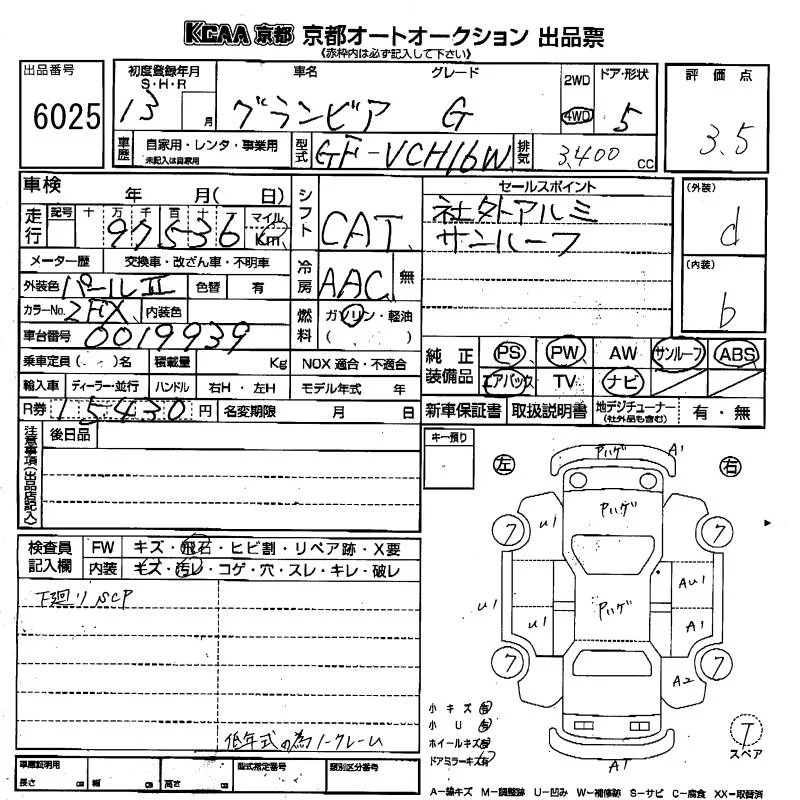 KCAA 京都 京都オートオークション 出品票
《赤枠内は必ず記入して下さい》
出品番号 6025
初度登録年月 S・H・R 13 月
車名 グランビア グレード G
2WD 4WD
ドア・形状 5
評価点 3.5
車歴 自家用・レンタ・事業用 未記入は自家用
型式 GF-VCH16W
排気 3,400 CC
車検 年 月( 日)
シフト CAT
セールスポイント
社外アルミ
サンルーフ
(外装) d
(内装) b
走行 記号 十 万 千 百 十 マイル km 97536
メーター歴 交換車・改ざん車・不明車
冷房 AAC 無
外装色 パールII 色替 有
カラーNo. 2EX 内装色
燃料 ガソリン・軽油 ( )
車台番号 0019939
乗車定員( )名 積載量 Kg NOX 適合・不適合
輸入車 ディーラー・並行 ハンドル 右H・左H モデル年式 年
R券 15430 円 名変期限 月 日
純正装備品 PS PW AW サンルーフ ABS
エアバック TV ナビ
新車保証書 取扱説明書 地デジチューナー (社外品も含む) 有・無
注意事項(出品店記入)
後日品
キー預り
検査員記入欄 FW キズ・飛石・ヒビ割・リペア跡・X要
内装 キズ・汚レ・コゲ・穴・スレ・キレ・破レ
下廻り SCP
低年式の為ノークレーム
左 右
Pハゲ A1
Pハゲ
7 U1 7
U1 U1 Pハゲ AU1
A1
7 A2 7
A1
小キズ 有
小U 有
ホイールキズ 有
ドアミラーキズ 有
T
スペア
車庫証明用 長さ cm 幅 cm 高さ cm
型式指定番号 類別区分番号
A―線キズ M―調整跡 U―凹み W―補修跡 S―サビ C―腐食 XX―取替済